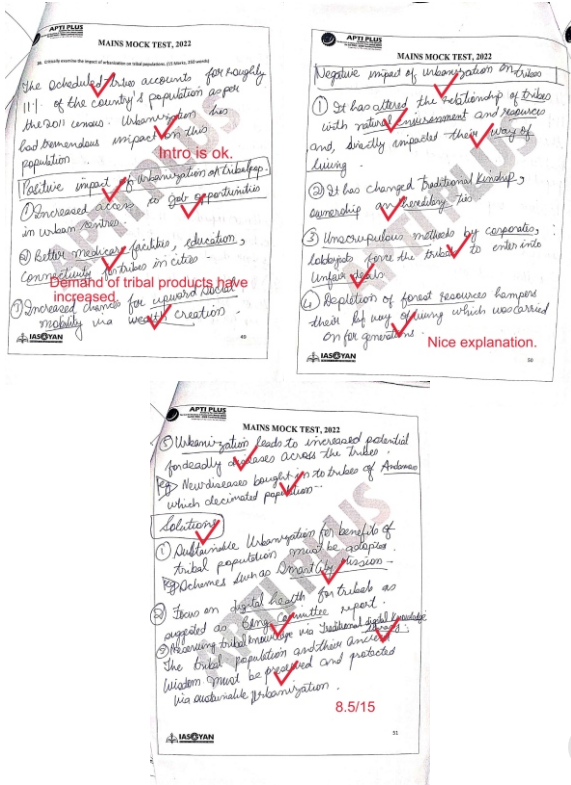 APTI PLUS
MAINS MOCK TEST, 2022
20. Critically examine the impact of urbanization on tribal populations. (15 Marks, 250 words)
The scheduled tribes accounts for roughly
11% of the country's population as per
the 2011 census. Urbanization has
had tremendous impact on this
population
Intro is ok.
Positive impact of urbanization on tribal pop.
① Increased access to Job opportunities
in urban centres.
② Better medicare facilities, education,
connectivity for tribes in cities.
Demand of tribal products have
increased.
③ Increased chances for upward social
mobility via wealth creation.
IASGYAN
49
APTI PLUS
MAINS MOCK TEST, 2022
Negative impact of urbanization on tribes
① It has altered the relationship of tribes
with natural environment and resources
and, directly impacted their way of
living.
② It has changed traditional kinship,
ownership and hereditary ties
③ Unscrupulous methods by corporates,
lobbyists force the tribals to enter into
unfair deals
④ Depletion of forest resources hampers
their way of living which was carried
on for generations.
Nice explanation.
IASGYAN
50
APTI PLUS
MAINS MOCK TEST, 2022
⑤ Urbanization leads to increased potential
for deadly diseases across the tribes.
eg New diseases bought in to tribes of Andaman
which decimated population...
Solutions
① Sustainable Urbanization for benefits of
tribal population must be adopted.
Eg Schemes such as Smart City Mission
② Focus on digital health for tribals as
suggested as Committee report.
③ Preserving tribal knowledge via Traditional digital knowledge
library.
The tribal population and their ancient
wisdom must be preserved and protected
via sustainable urbanization.
8.5/15
IASGYAN
51
APTI PLUS
APTI PLUS
APTI PLUS